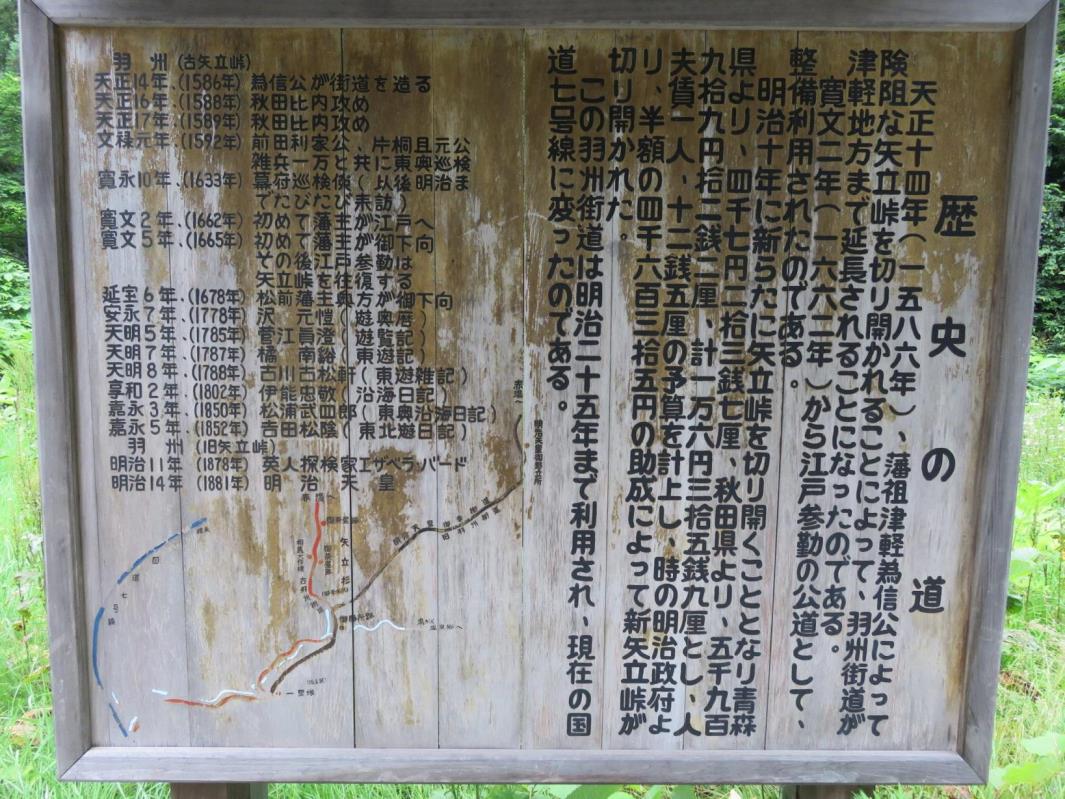 歴史の道
天正十四年(一五八六年)、藩祖津軽為信公によって
険阻な矢立峠を切り開かれることによって、羽州街道が
津軽地方まで延長されることになったのである。
寛文二年(一六六二年)から江戸参勤の公道として、
整備利用されたのである。
明治十年に新らたに矢立峠を切り開くこととなり青森
県より、四千七円二拾三銭七厘、秋田県より、五千九百
九拾九円拾二銭二厘、計一万六円三拾五銭九厘とし、人
夫賃一人、十二銭五厘の予算を計上し、時の明治政府よ
り、半額の四千六百三拾五円の助成によって新矢立峠が
切り開かれた。
この羽州街道は明治二十五年まで利用され、現在の国
道七号線に変ったのである。
羽州(古矢立峠)
天正14年、(1586年) 為信公が街道を造る
天正16年、(1588年) 秋田比内攻め
天正17年、(1589年) 秋田比内攻め
文禄元年、(1592年) 前田利家公、片桐且元公
雑兵一万と共に東奥巡検
寛永10年、(1633年) 幕府巡検使(以後明治ま
でたびたび来訪)
寛文2年、(1662年) 初めて藩主が江戸へ
寛文5年、(1665年) 初めて藩主が御下向
その後江戸参勤は
矢立峠を往復する
延宝6年、(1678年) 松前藩主奥方御下向
安永7年、(1778年) 沢元愷
天明5年、(1785年) 菅江真澄(遊覧記)
天明7年、(1787年) 橘南谿(東遊記)
天明8年、(1788年) 古川古松軒(東遊雑記)
享和2年、(1802年) 伊能忠敬(沿海日記)
嘉永3年、(1850年) 松浦武四郎(東奥沿海日記)
嘉永5年、(1852年) 吉田松陰(東北遊日記)
羽州(旧矢立峠)
明治11年、(1878年) 英人探検家エザベラ・バード
明治14年、(1881年) 明治天皇
矢立杉
一里塚